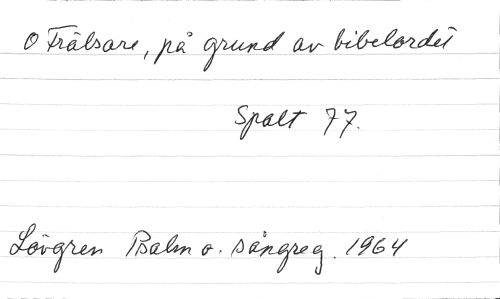 O Frälsare, på grund av bibelordet
Spalt 77.
Lövgren Psalm o. sångreg. 1964